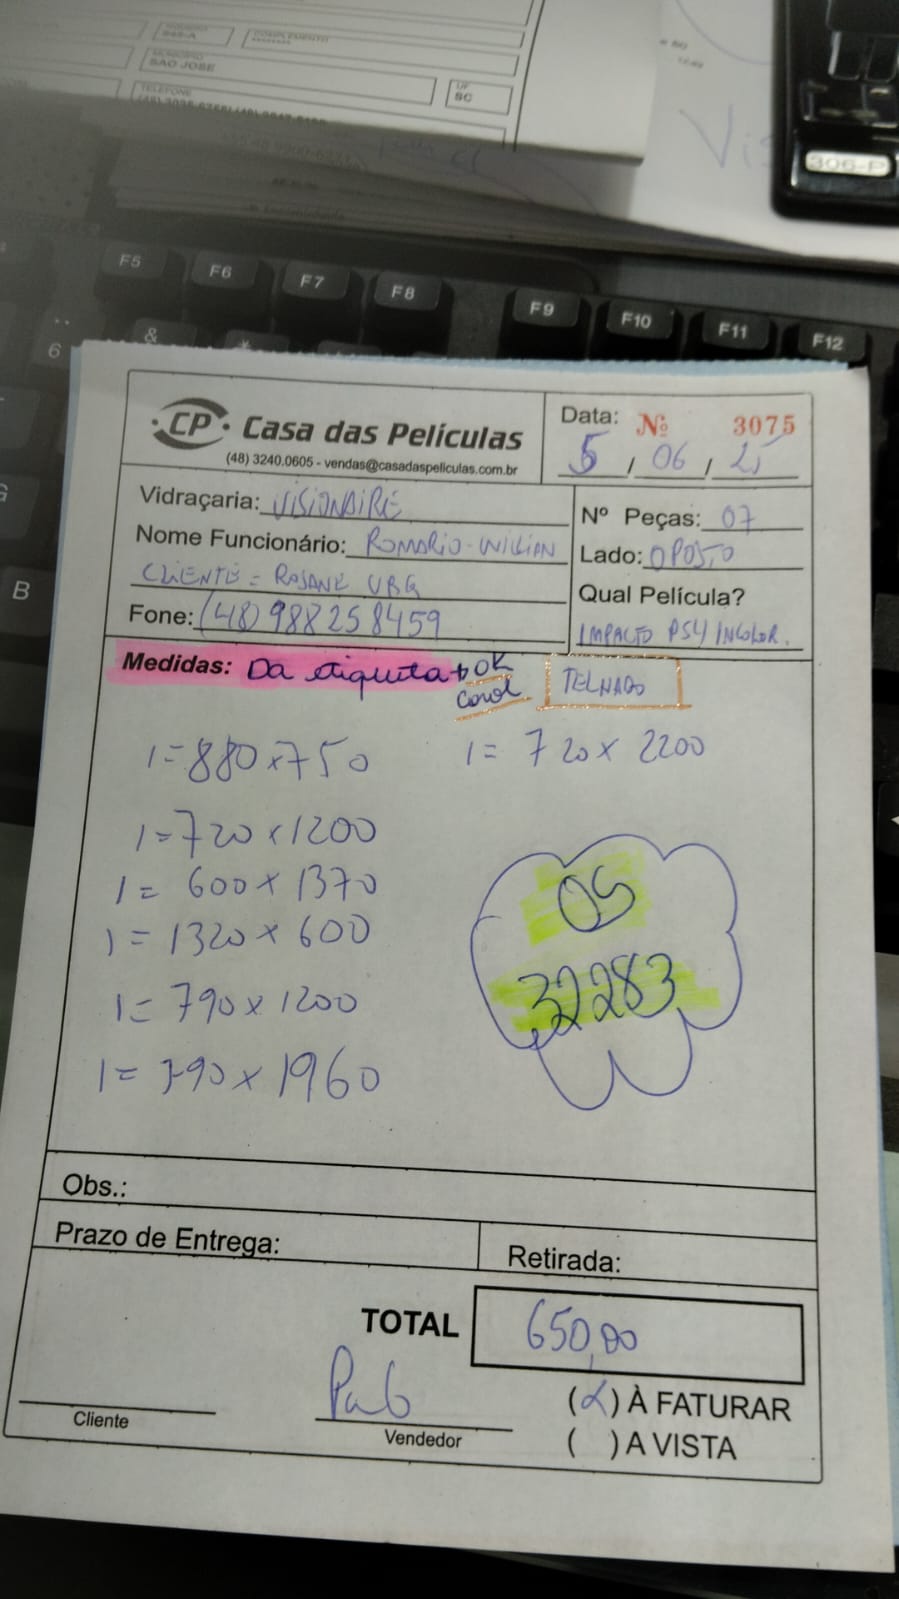 COMPLEMENTO
MUNICÍPIO
SAO JOSE
TELEFONE
UF
SC
306-P
F5 F6 F7 F8 F9 F10 F11 F12
&
6
B
CP Casa das Películas
(48) 3240.0605 - vendas@casadaspeliculas.com.br
Data: Nº 3075
5 / 06 / 25
Vidraçaria: VISIONAIRE
Nome Funcionário: ROMARIO-WILLIAN
CLIENTE = ROSANE
Fone: (48) 988258459
Nº Peças: 07
Lado: OPOSTO
Qual Película?
IMPACTO PS4 INCOLOR.
Medidas: Da etiqueta OK
Carol
TELHADO
1=880x750
1= 720x2200
1=720x1200
1= 600x1370
1= 1320x600
1= 790x1200
1= 390x1960
OS
32283
Obs.:
Prazo de Entrega:
Retirada:
TOTAL 650,00
Cliente
Vendedor
(X) À FATURAR
( ) A VISTA